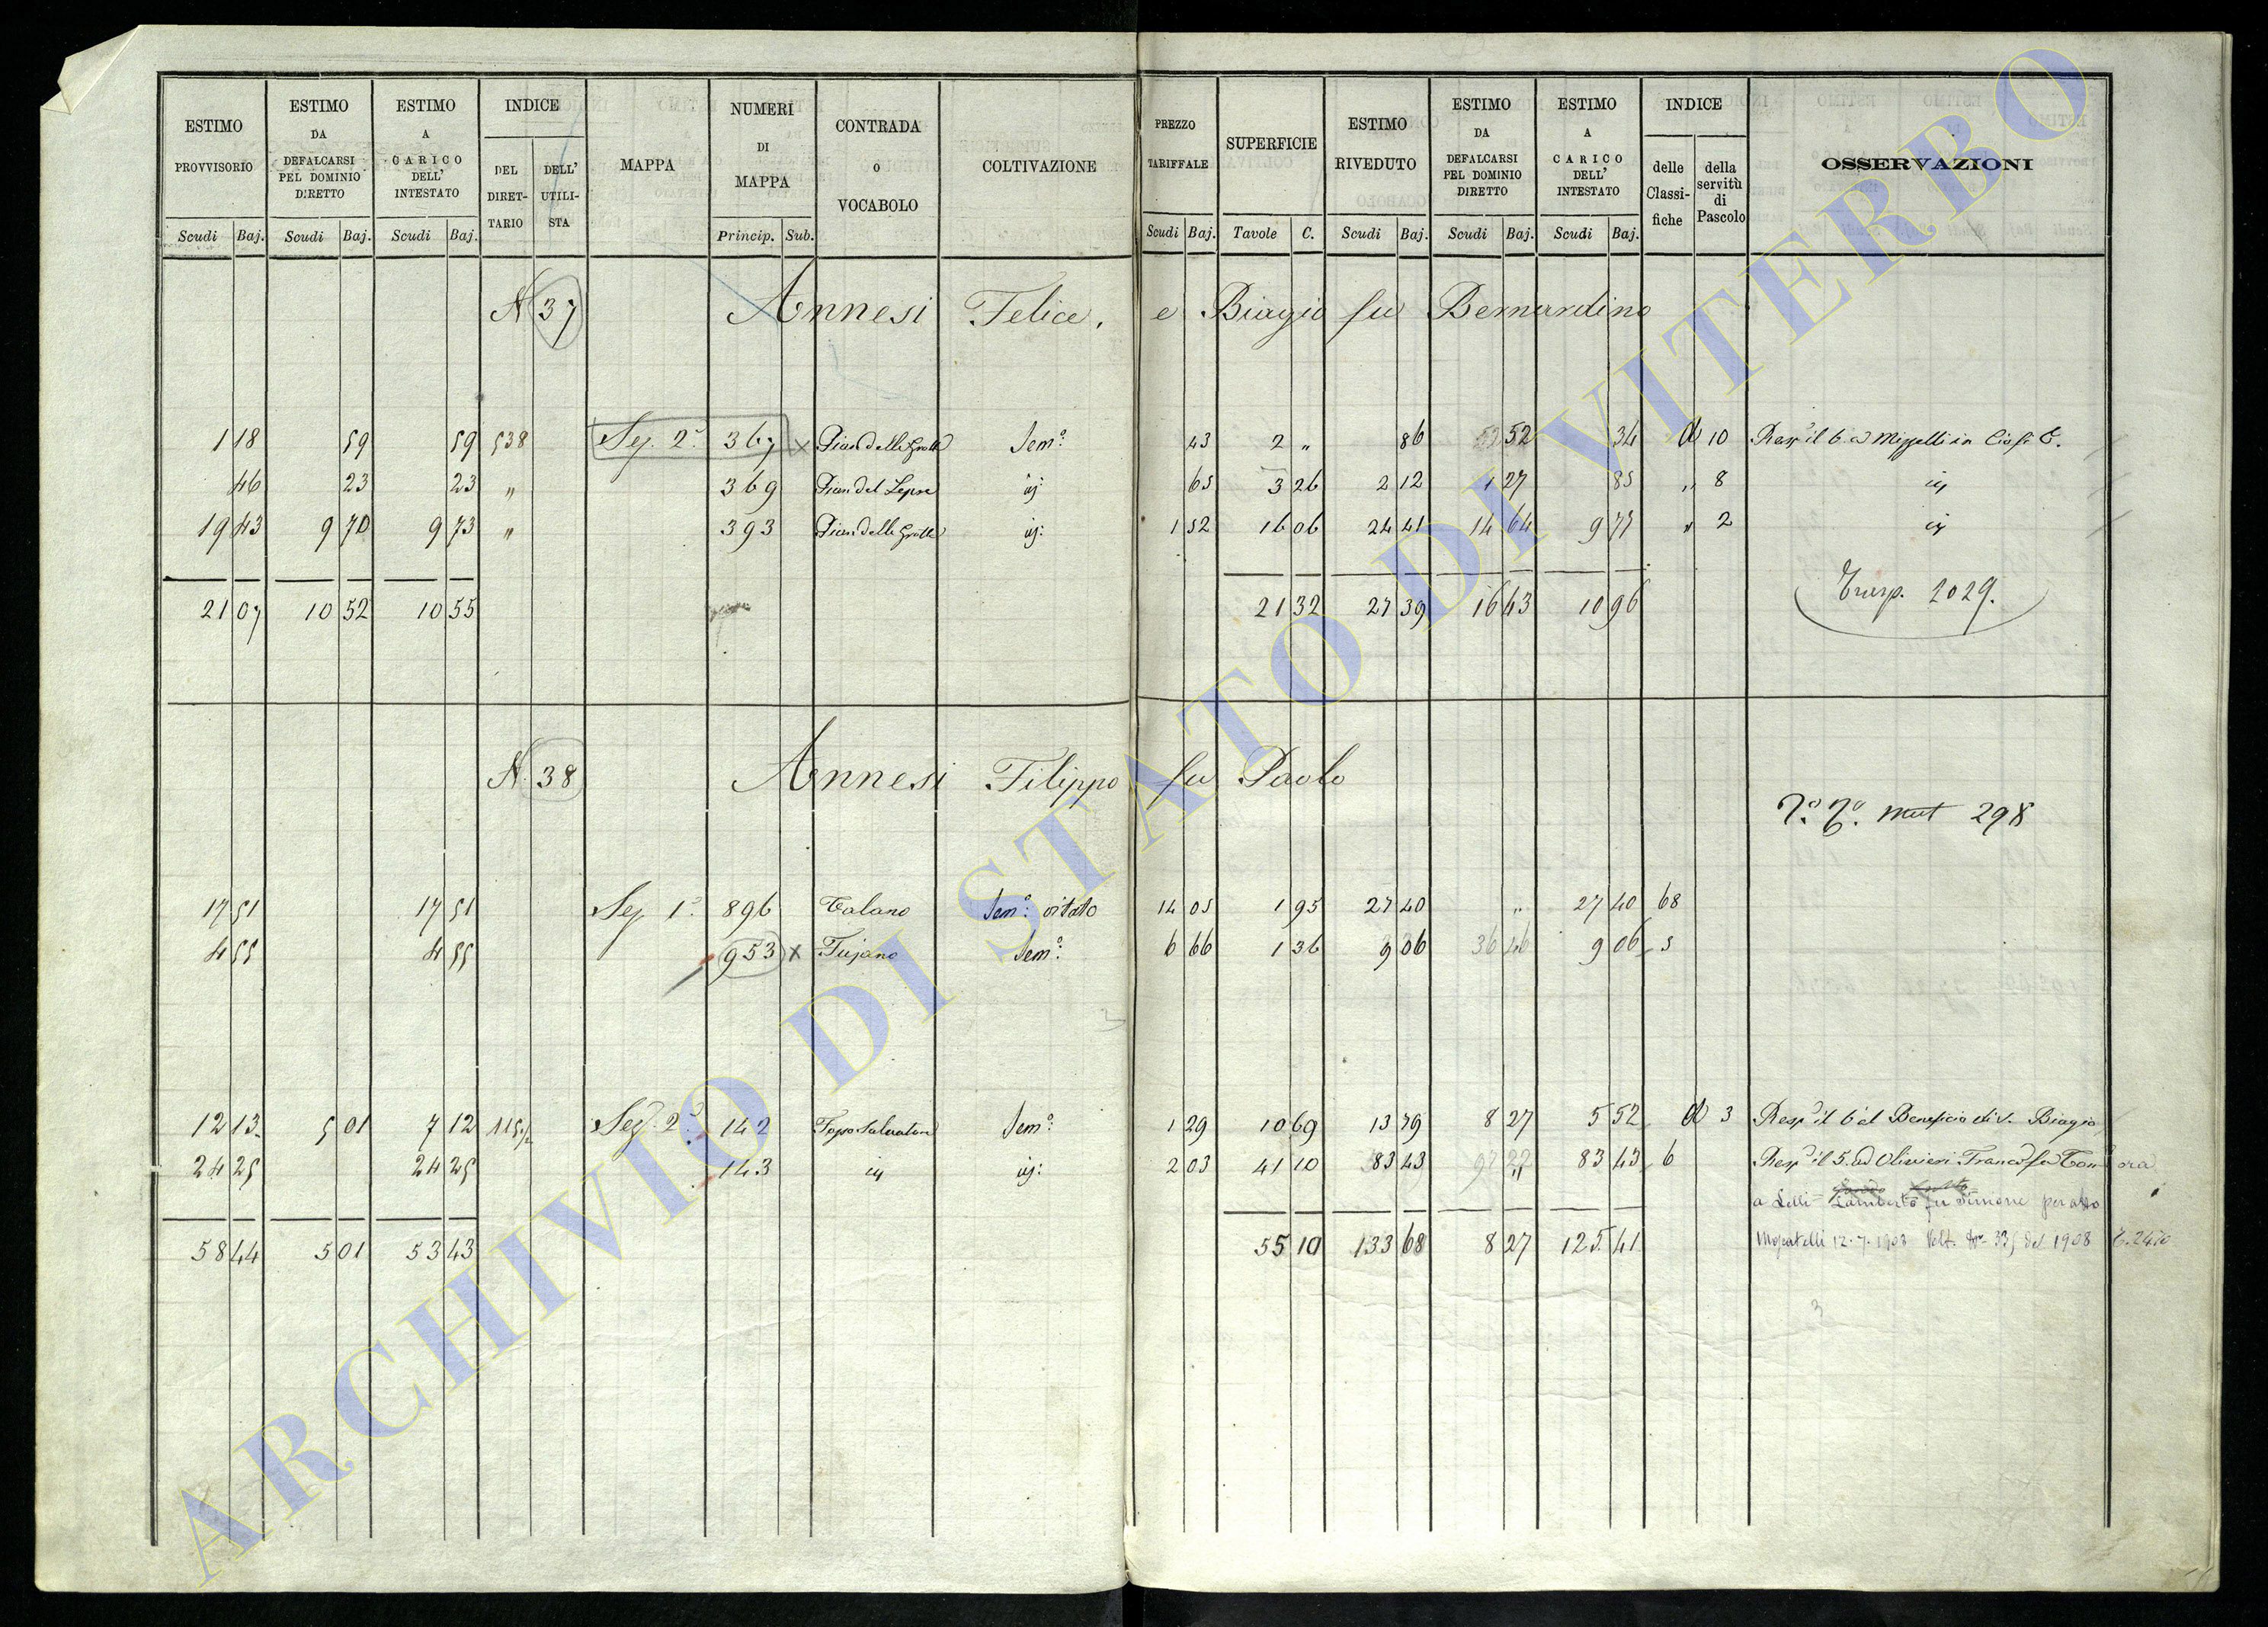 ESTIMO PROVVISORIO | ESTIMO DA DEFALCARSI PEL DOMINIO DIRETTO | ESTIMO A CARICO DELL' INTESTATO | INDICE DEL DIRETTARIO | DELL' UTILISTA | MAPPA | NUMERI DI MAPPA | CONTRADA O VOCABOLO | COLTIVAZIONE | PREZZO TARIFFALE | SUPERFICIE | ESTIMO RIVEDUTO | ESTIMO DA DEFALCARSI PEL DOMINIO DIRETTO | ESTIMO A CARICO DELL' INTESTATO | INDICE delle Classifiche | della servitù di Pascolo | OSSERVAZIONI
Scudi Baj. Scudi Baj. Scudi Baj. Princip. Sub. Scudi Baj. Tavole C. Scudi Baj. Scudi Baj. Scudi Baj.
N 37 Annesi Felice, e Biagio fu Bernardino
1 18 59 59 538 Sez. 2ª 367 x Pian delle Grotte Semº 43 2 " 86 52 34 d 10
46 23 23 " 369 Pian del Lepre id 65 3 26 2 12 1 27 85 " 8 id
19 43 9 70 9 73 " 393 Pian delle Grotte id: 1 52 16 06 24 41 14 64 9 77 " 2 id
21 07 10 52 10 55 21 32 27 39 16 43 10 96
Trasp. 2029.
N. 38 Annesi Filippo fu Paolo
mut 298
17 51 17 51 Sez. 1ª 896 Talano Semº: vitato 14 05 1 95 27 40 " 27 40 68
4 55 4 55 953 x Fujano Semº: 6 66 1 36 9 06 36 46 9 06 5
12 13 5 01 7 12 Sez. 2ª 142 Topo Salvatore Semº: 1 29 10 69 13 79 8 27 5 52 d 3 Resp il 6 al Beneficio di S. Biagio
24 25 24 25 143 id id: 2 03 41 10 83 43 " 83 43 6 Resp il 5. ad Olivieri Franco fu Tom ora
a Lelli Lamberto fu Simone per atto
58 44 5 01 53 43 55 10 133 68 8 27 125 41 12.7.1908 Volt. Nº 335 del 1908 T. 2470
ARCHIVIO DI STATO DI VITERBO